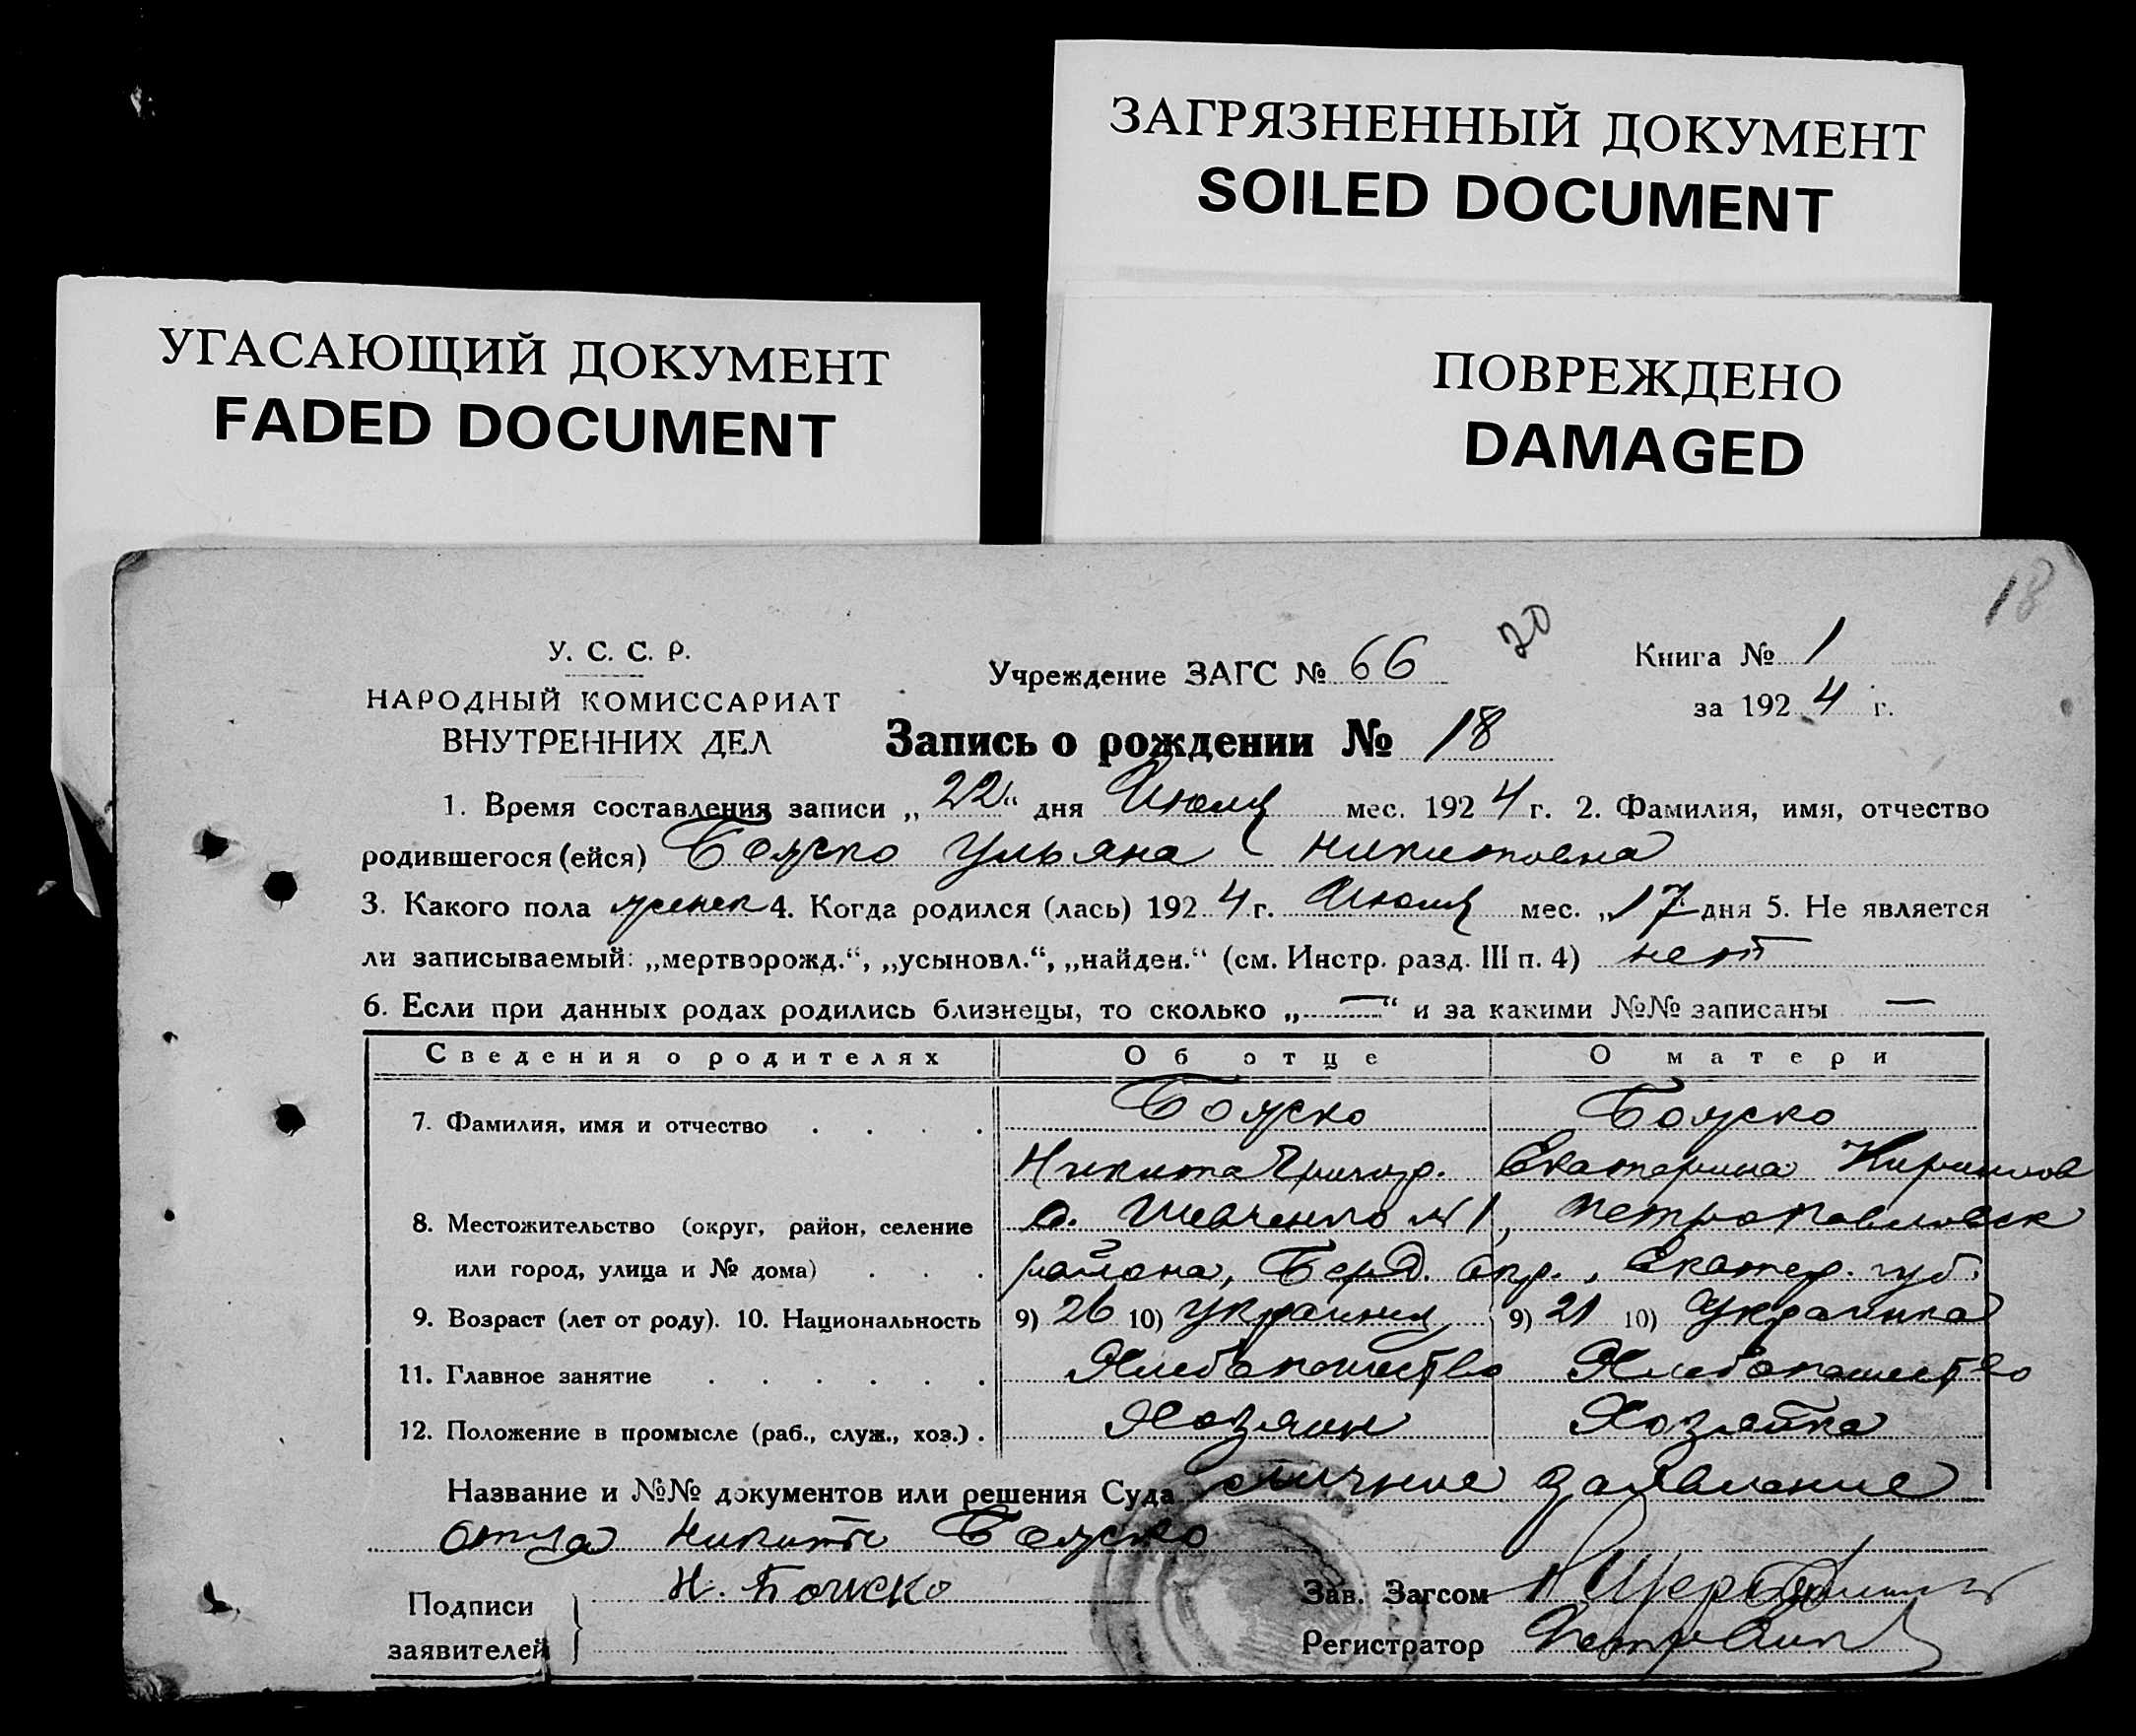 ЗАГРЯЗНЕННЫЙ ДОКУМЕНТ
SOILED DOCUMENT
УГАСАЮЩИЙ ДОКУМЕНТ
FADED DOCUMENT
ПОВРЕЖДЕНО
DAMAGED
18
20
У. С. С. Р.
НАРОДНЫЙ КОМИССАРИАТ
ВНУТРЕННИХ ДЕЛ
Учреждение ЗАГС № 66
Книга № 1
за 1924 г.
Запись о рождении № 18
1. Время составления записи „22“ дня Июля мес. 1924 г. 2. Фамилия, имя, отчество
родившегося (ейся) Божко Ульяна Никитовна
3. Какого пола женск 4. Когда родился (лась) 1924 г. Июля мес. „17 дня 5. Не является
ли записываемый: „мертворожд.“, „усыновл.“, „найден.“ (см. Инстр. разд. III п. 4) нет
6. Если при данных родах родились близнецы, то сколько „—“ и за какими №№ записаны —
Сведения о родителях Об отце О матери
7. Фамилия, имя и отчество Божко Божко
Никита Григор. Екатерина Кирилов
8. Местожительство (округ, район, селение с. Шевченко №1, Петропавловск
или город, улица и № дома) района, Берд. окр., Екатер. губ.
9. Возраст (лет от роду). 10. Национальность 9) 26 10) украинец 9) 21 10) Украинка
11. Главное занятие Хлебопашество Хлебопашество
12. Положение в промысле (раб., служ., хоз.) Хозяин Хозяйка
Название и №№ документов или решения Суда личное заявление
отца Никиты Божко
Подписи Н. Божко Зав. Загсом
заявителей Регистратор